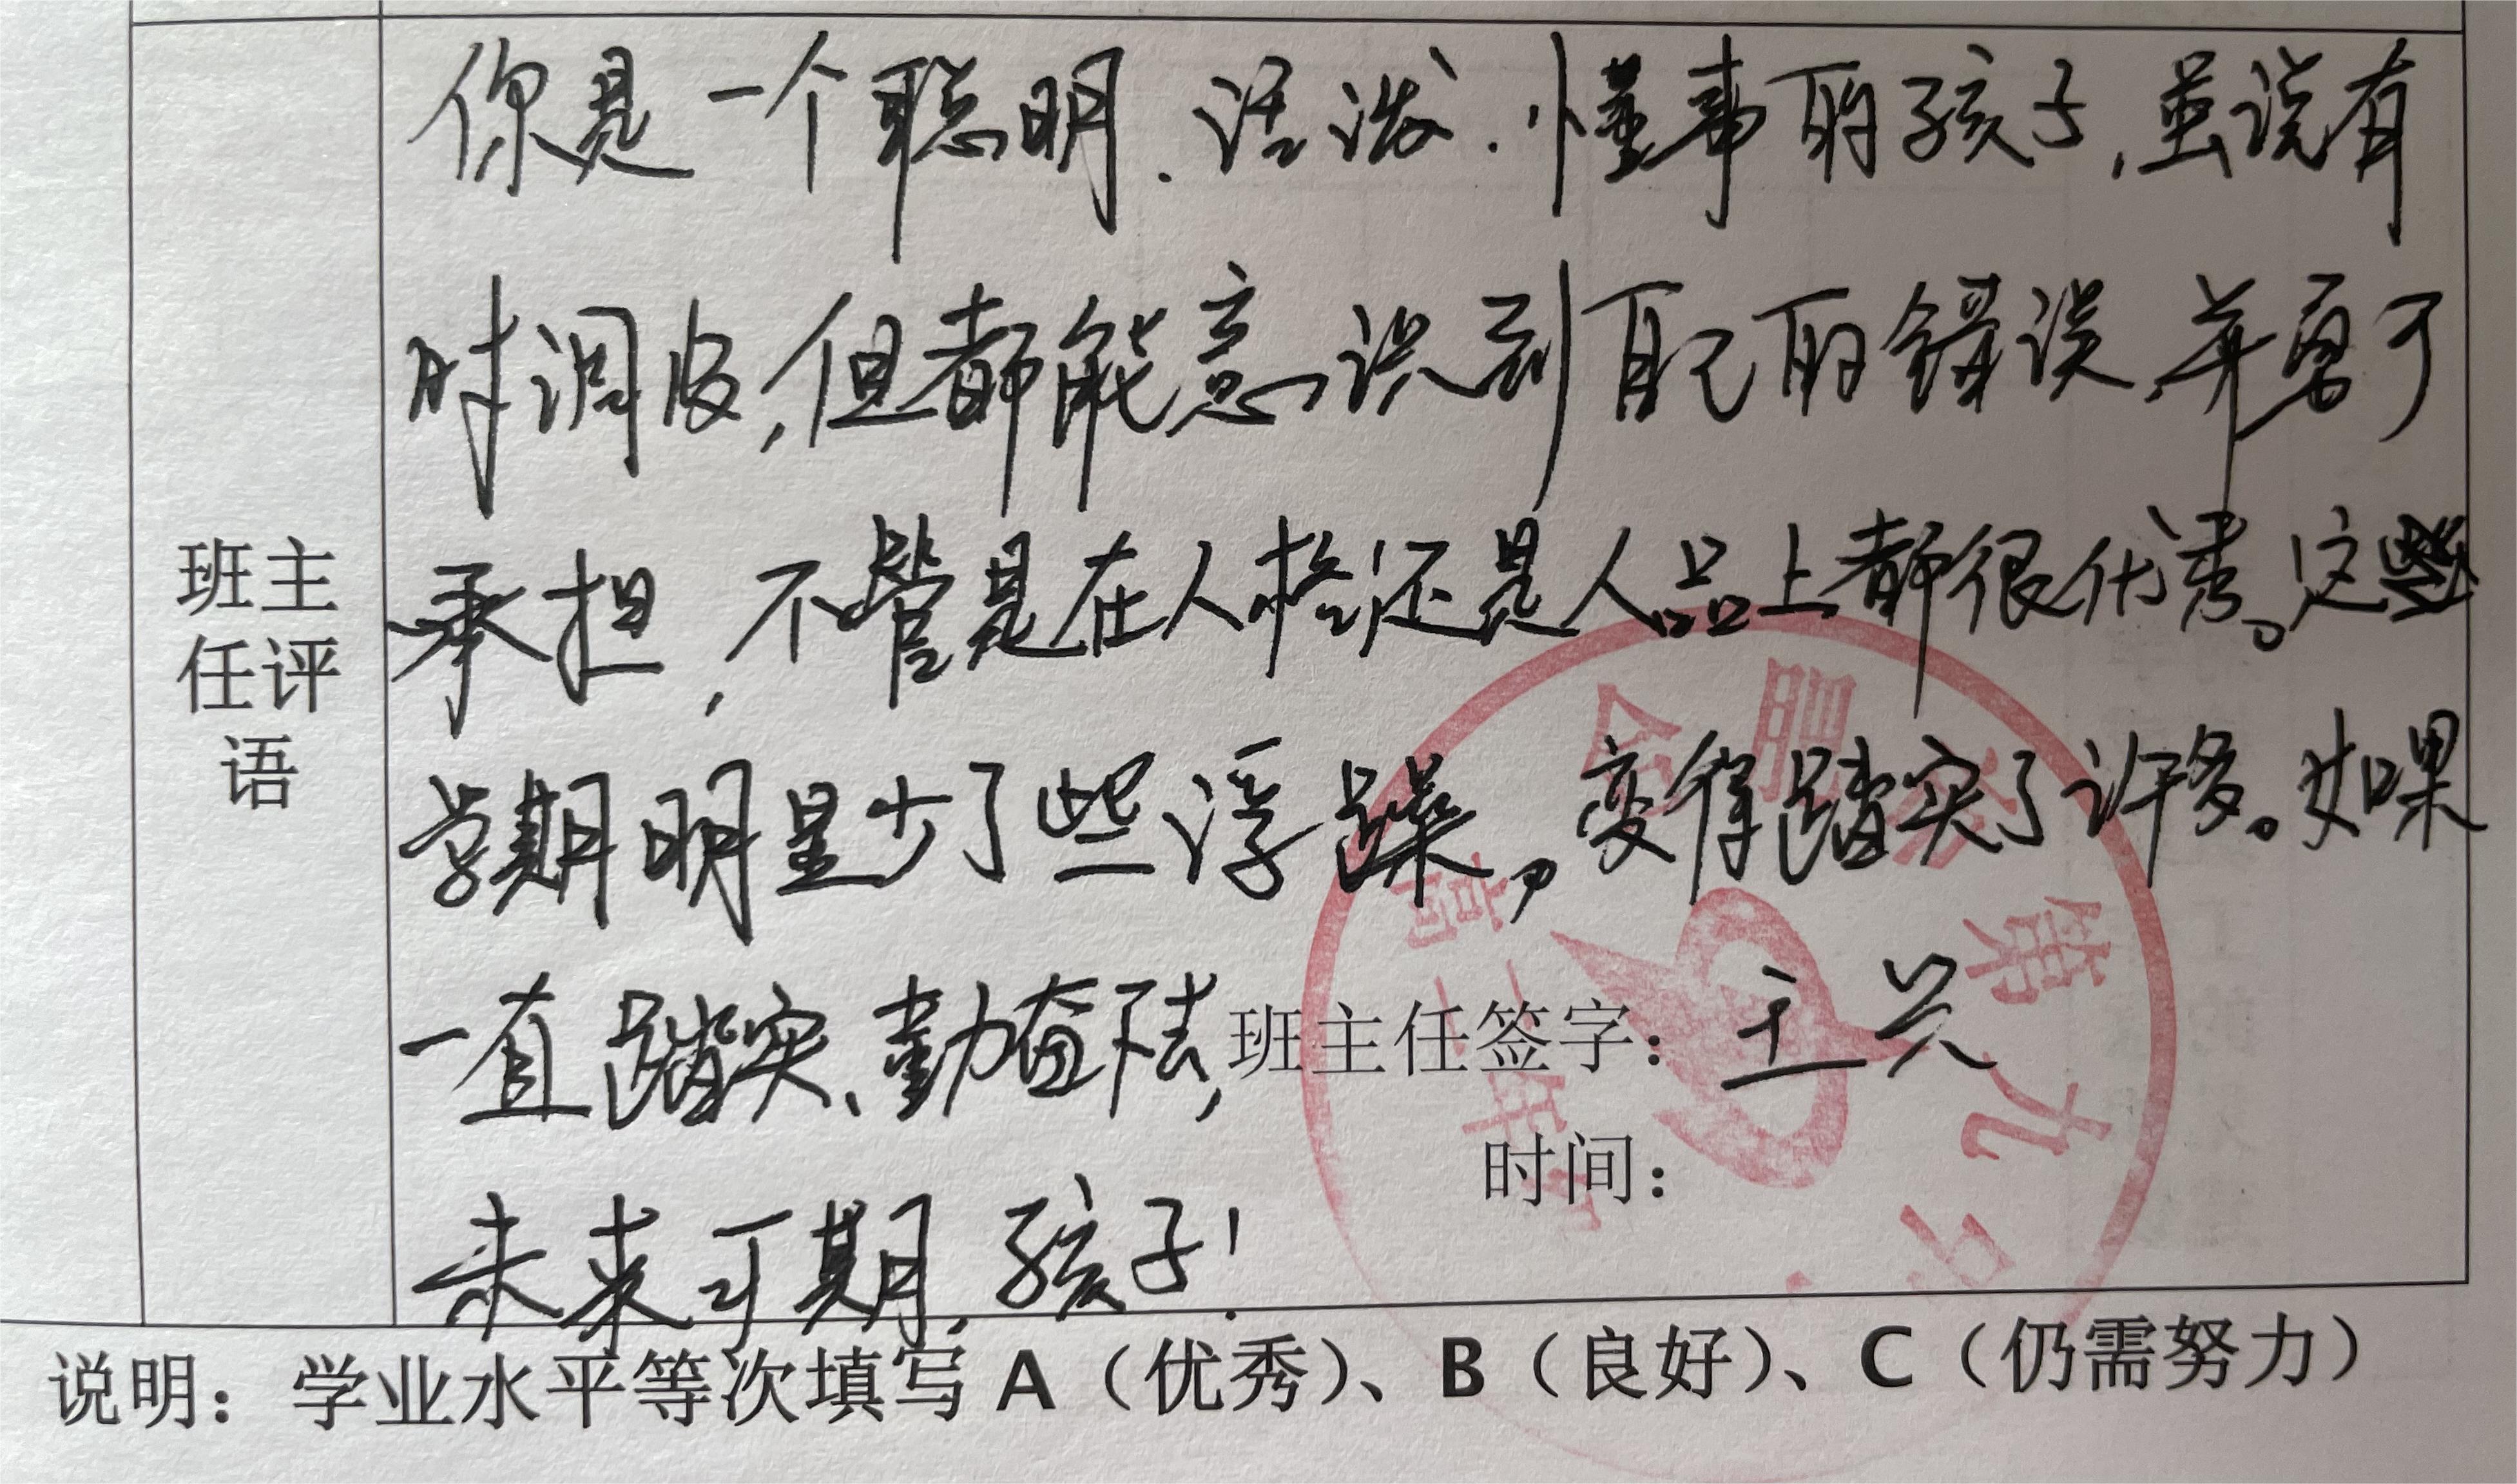 你是一个聪明、活泼、懂事的孩子，虽说有
时调皮，但都能意识到自己的错误，并勇于
承担，不管是在人格还是人品上都很优秀。这些
班主
任评
语
学期明显少了些浮躁，变得踏实了许多。如果
一直踏实、勤奋下去，
班主任签字：王兴
时间：
未来可期，孩子！
说明：学业水平等次填写 A（优秀）、B（良好）、C（仍需努力）
第九